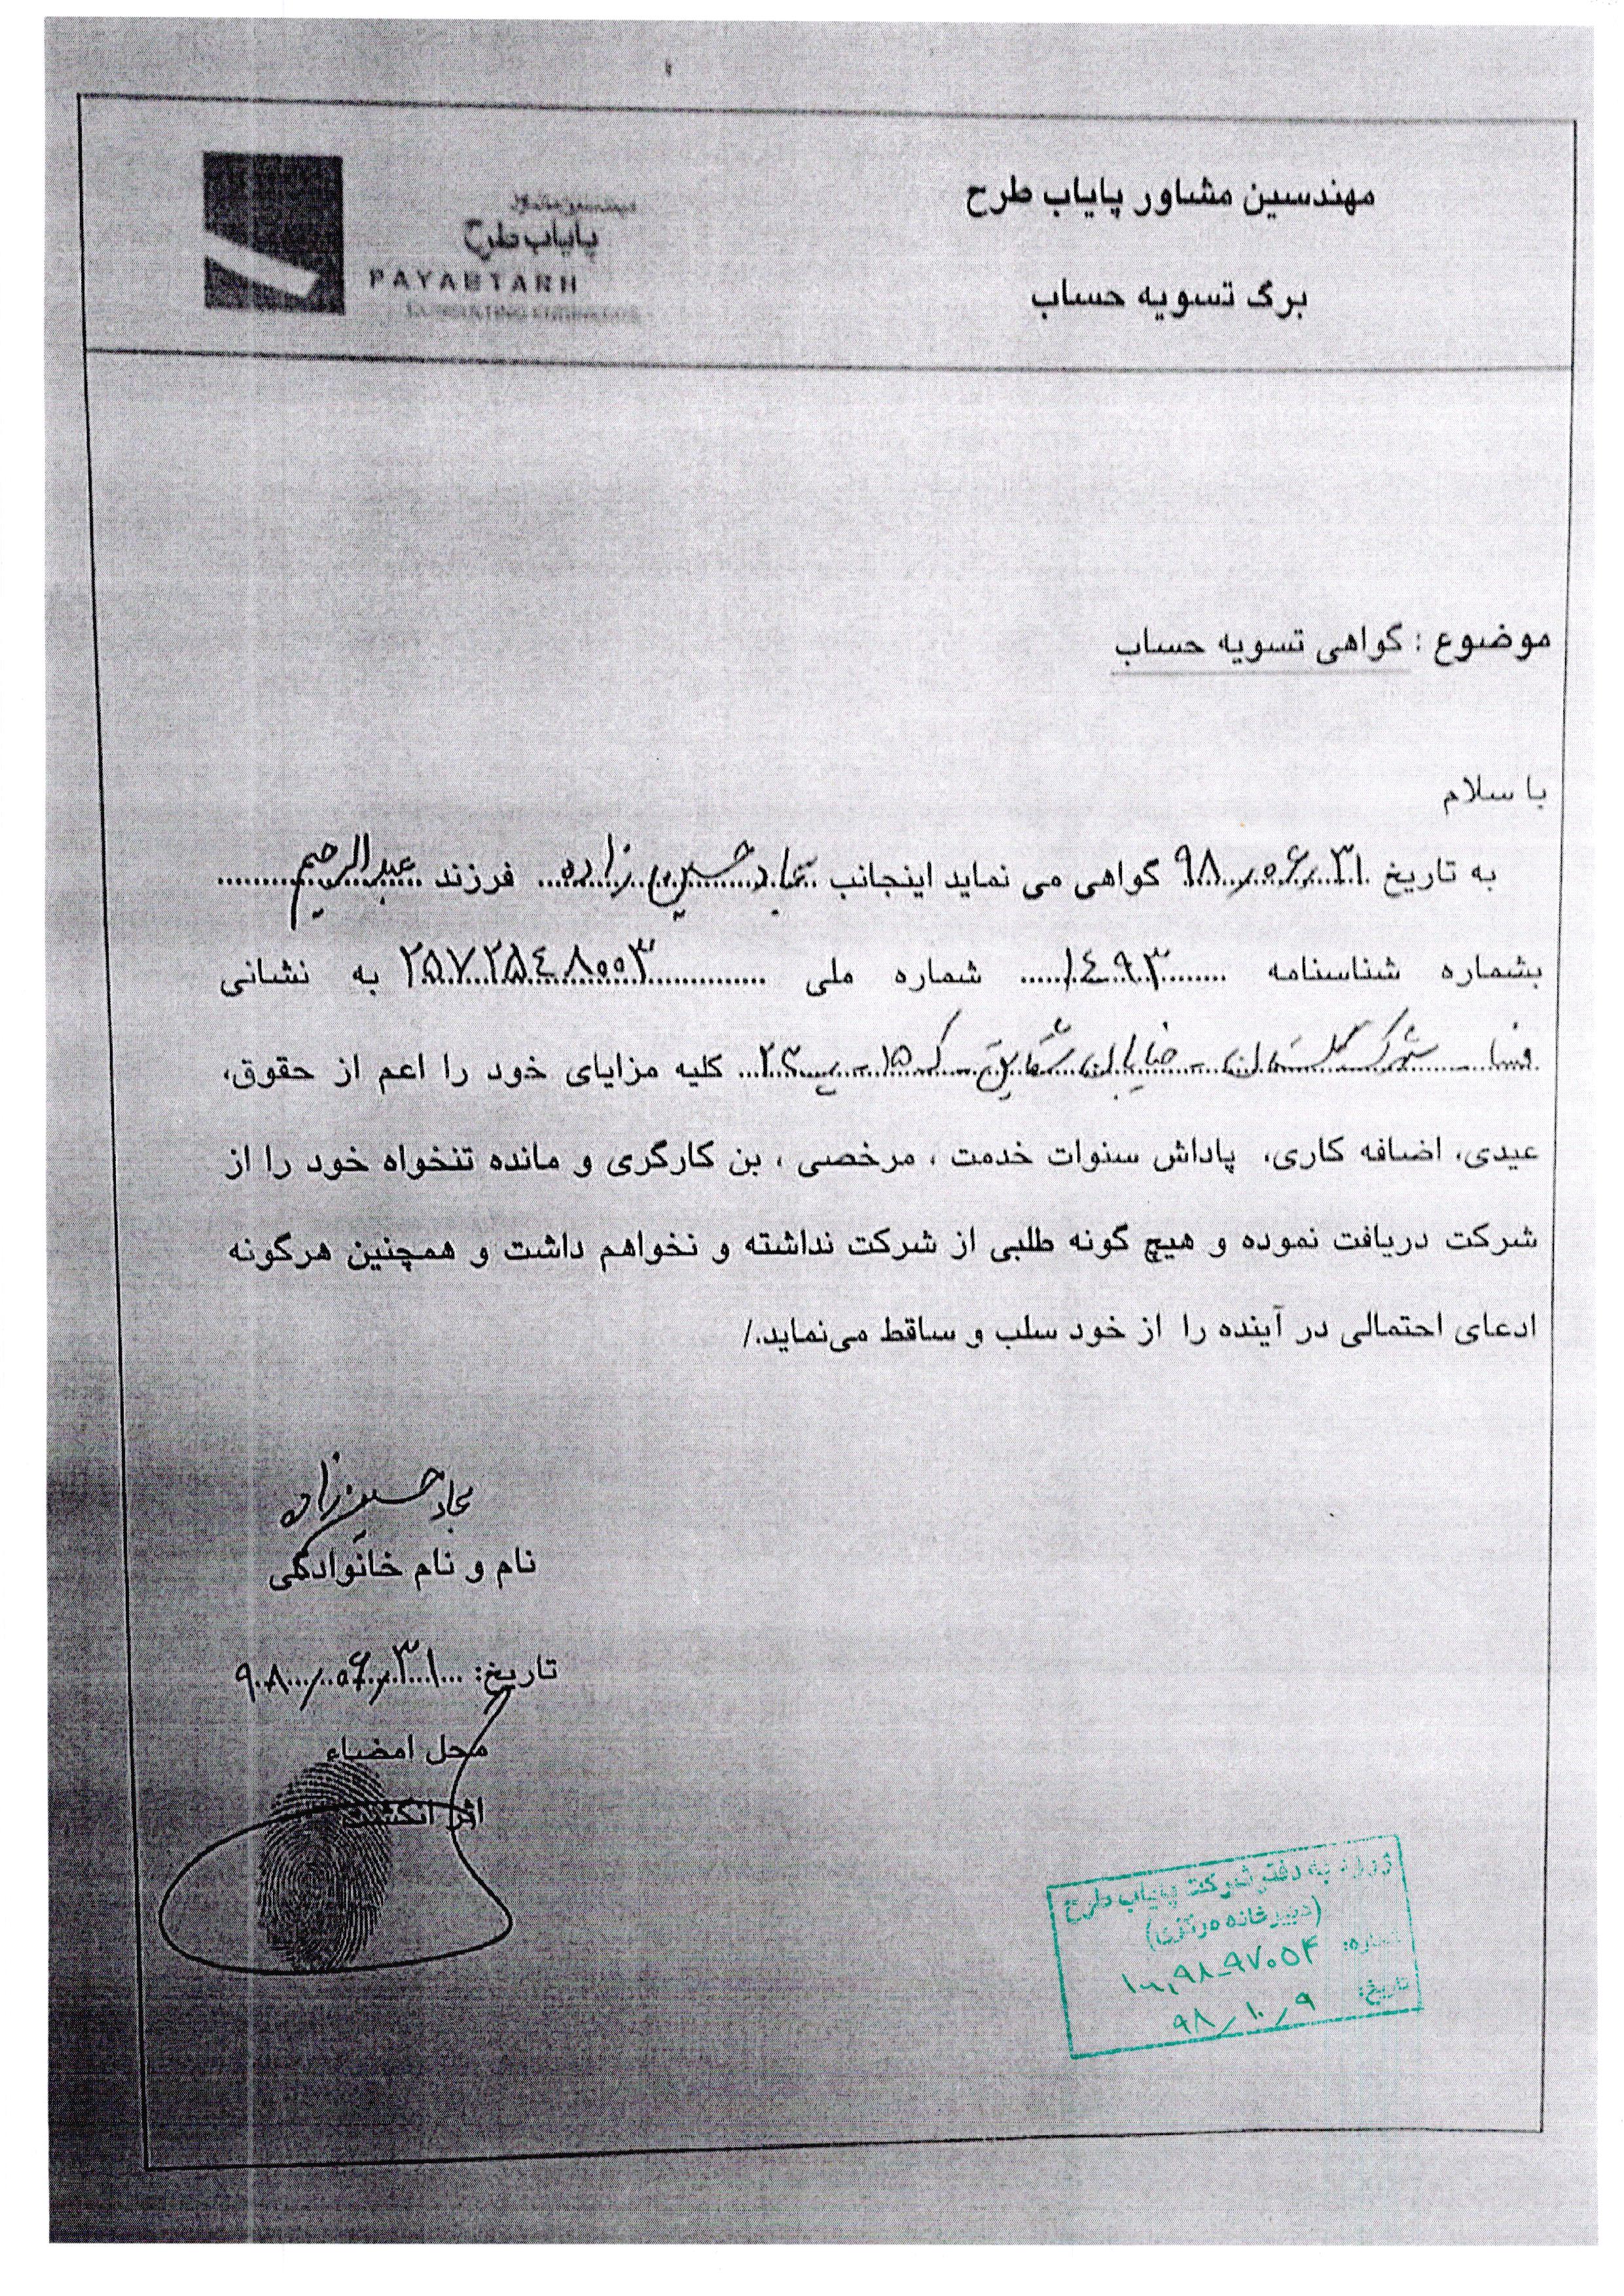 مهندسین مشاور پایاب طرح
برگ تسویه حساب
مهندسین مشاور
پایاب طرح
PAYABTARH
CONSULTING ENGINEERS
موضوع : گواهی تسویه حساب
با سلام
به تاریخ ۹۸/۰۶/۳۱ گواهی می نماید اینجانب حسین زاده فرزند عبدالرحیم
بشماره شناسنامه ۱۴۹۳ شماره ملی ۲۵۷۲۵۴۸۰۰۳ به نشانی
فسا - شهرک گلستان - خیابان شقایق - ک ۱۵ - پ ۲۳ کلیه مزایای خود را اعم از حقوق،
عیدی، اضافه کاری، پاداش سنوات خدمت ، مرخصی ، بن کارگری و مانده تنخواه خود را از
شرکت دریافت نموده و هیچ گونه طلبی از شرکت نداشته و نخواهم داشت و همچنین هرگونه
ادعای احتمالی در آینده را از خود سلب و ساقط می‌نماید./
حسین زاده
نام و نام خانوادگی
تاریخ: ۹۸/۰۶/۳۱
محل امضاء
اثر انگشت
ورود به دفتر شرکت پایاب طرح
(دبیرخانه مرکزی)
شماره: ۹۸-۹۷۰۵۴
تاریخ: ۹۸/۱۰/۹